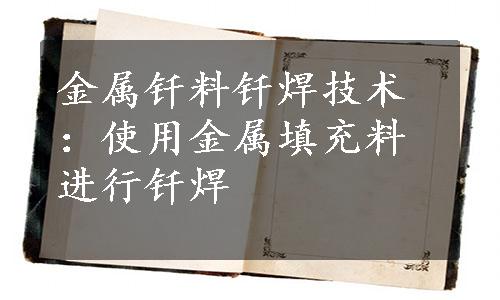 金属钎料钎焊技术
：使用金属填充料
进行钎焊